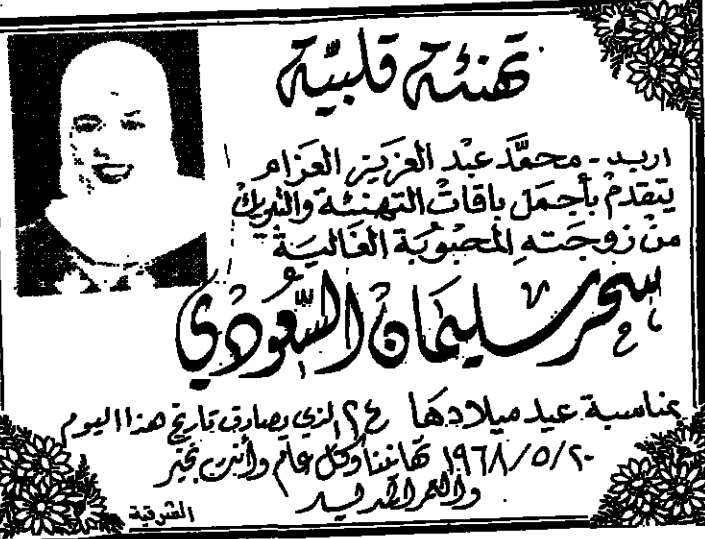 تهنئة قلبية
اربد - محمد عبد العزيز العزام
يتقدم بأجمل باقات التهنئة والتبريك
من زوجته المحبوبة الغالية
سحر سليمان السعودي
بمناسبة عيد ميلادها الذي يصادق تاريخ هذا اليوم
١٩٦٨/٥/٢٠ تهانينا وكل عام وأنت بخير
والعمر المديد
الشرقية